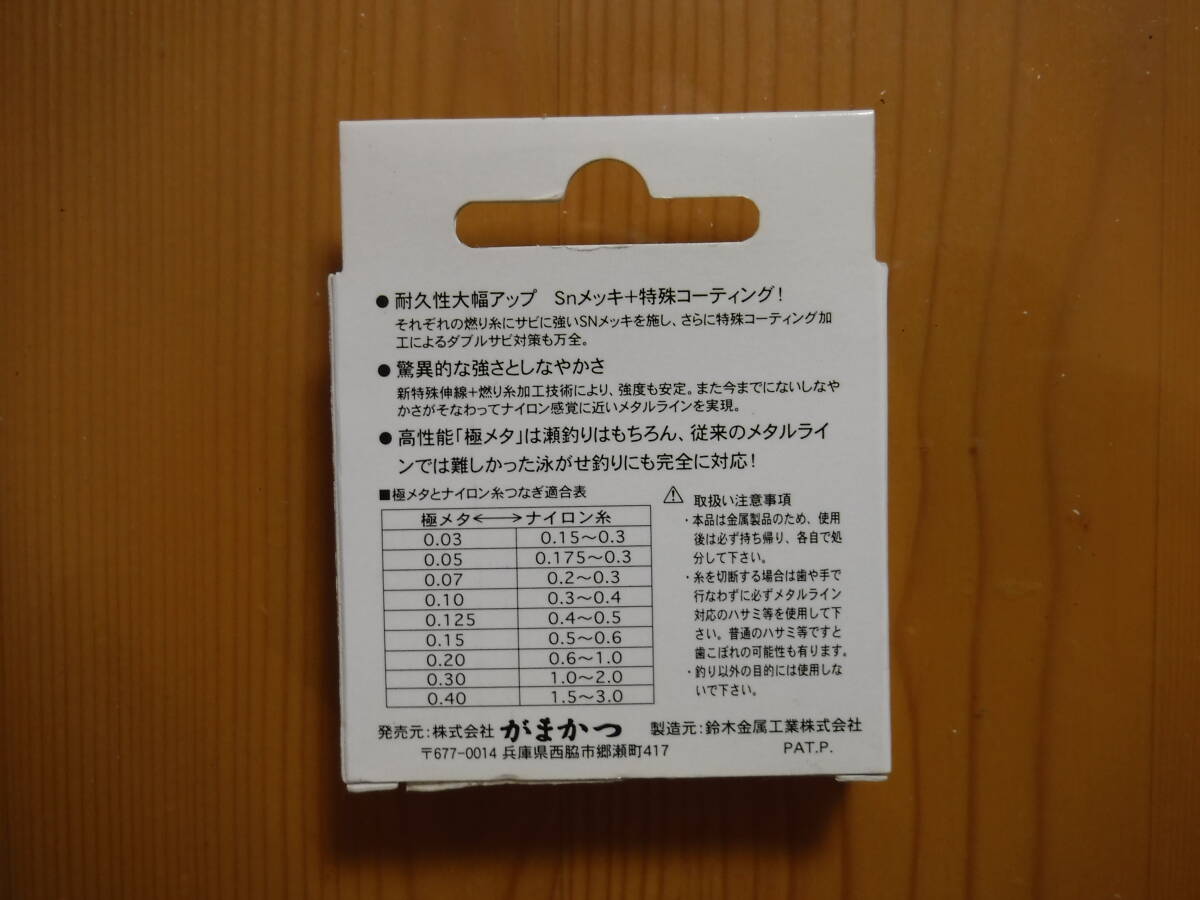 ● 耐久性大幅アップ Snメッキ+特殊コーティング!
それぞれの燃り糸にサビに強いSNメッキを施し、さらに特殊コーティング加
工によるダブルサビ対策も万全。
● 驚異的な強さとしなやかさ
新特殊伸線+燃り糸加工技術により、強度も安定。また今までにないしなや
かさがそなわってナイロン感覚に近いメタルラインを実現。
● 高性能「極メタ」は瀬釣りはもちろん、従来のメタルライ
ンでは難しかった泳がせ釣りにも完全に対応!
■極メタとナイロン糸つなぎ適合表
極メタ←→ナイロン糸
0.03 0.15〜0.3
0.05 0.175〜0.3
0.07 0.2〜0.3
0.10 0.3〜0.4
0.125 0.4〜0.5
0.15 0.5〜0.6
0.20 0.6〜1.0
0.30 1.0〜2.0
0.40 1.5〜3.0
⚠ 取扱い注意事項
・本品は金属製品のため、使用
後は必ず持ち帰り、各自で処
分して下さい。
・糸を切断する場合は歯や手で
行なわずに必ずメタルライン
対応のハサミ等を使用して下
さい。普通のハサミ等ですと
歯こぼれの可能性も有ります。
・釣り以外の目的には使用しな
いで下さい。
発売元:株式会社 がまかつ 製造元:鈴木金属工業株式会社
〒677-0014 兵庫県西脇市郷瀬町417 PAT.P.